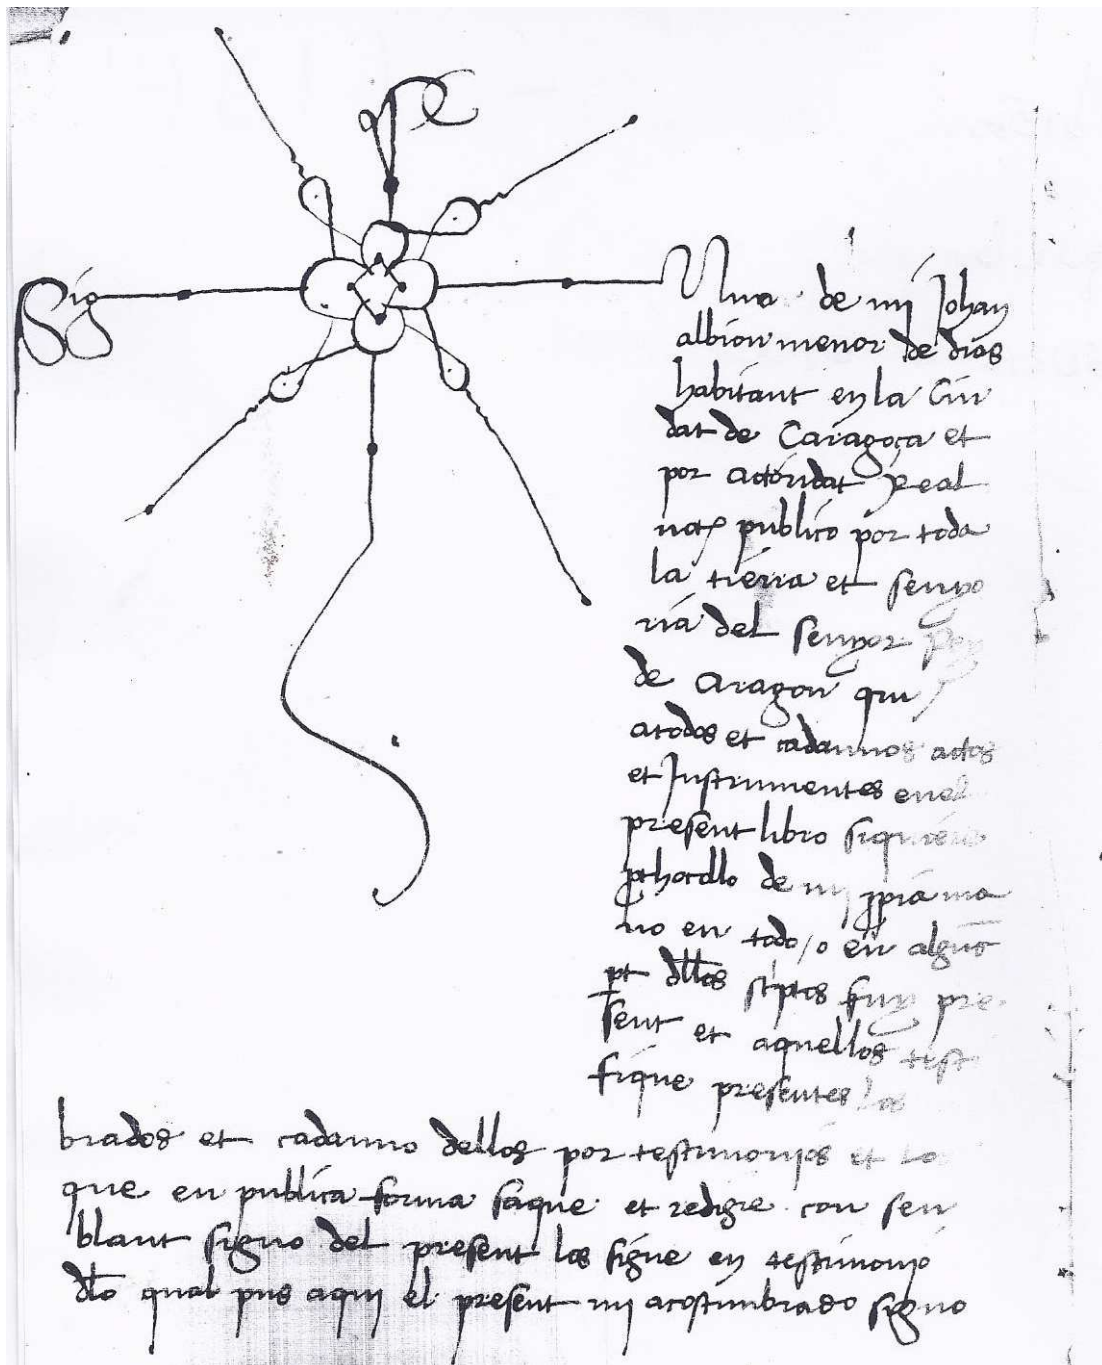 Sig no de mi Johan
albion menor de dias
habitant en la Ciu
dat de Caragoça et
por actoridat Real
not publico por toda
la tierra et senyo
ria del senyor Rey
de Aragon qui
a todos et cadaunos actos
et Instrumentes en el
present libro siquiere
pthocollo de mi ppia ma
no en todo / o en alguna
pt dllos scptos fuy pre
sent et aquellos testi
fique presentes los
brados et cadauno dellos por testimonios et los
que en publica forma saque et redigre con sen
blant signo del present los signe en testimonio
dlo qual pus aqui el present mi acostumbrado signo